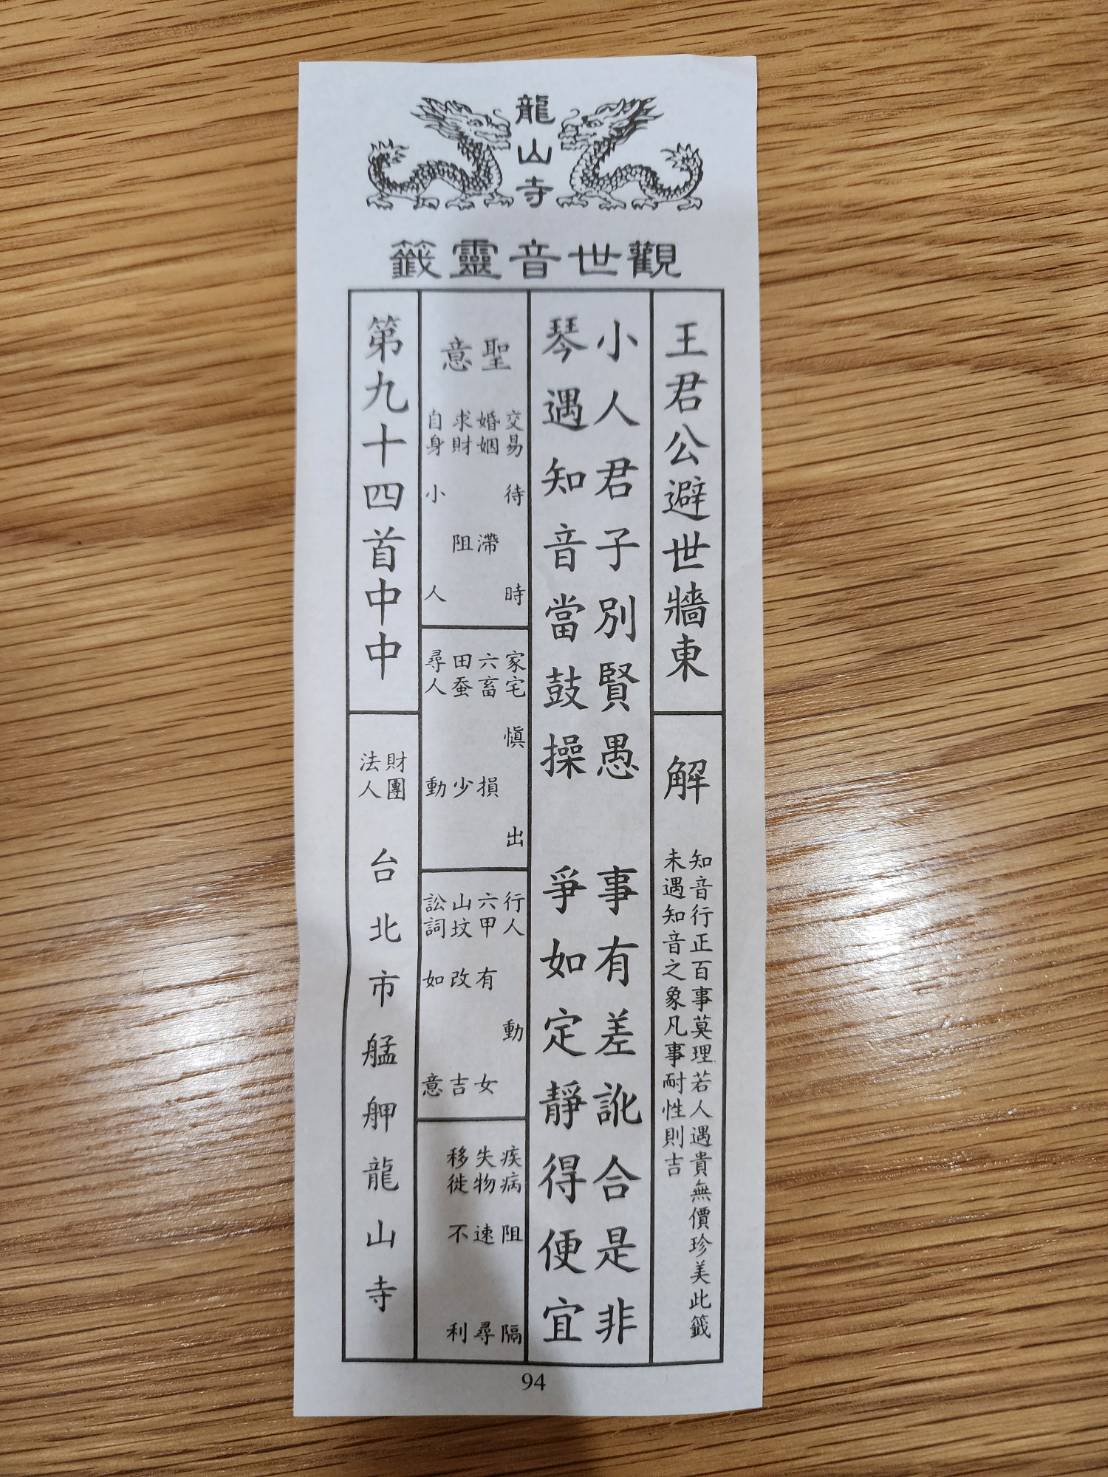 龍山寺
觀世音靈籤
王君公避世牆東
解
知音行正百事莫理若人遇貴無價珍美此籤
未遇知音之象凡事耐性則吉
小人君子別賢愚 事有差訛合是非
琴遇知音當鼓操 爭如定靜得便宜
聖意
交易待時
婚姻滯
求財阻
自身小人
家宅愼出
六畜損
田蚕少
尋人動
行人動
六甲有女
山坟改吉
訟詞如意
疾病阻隔
失物速尋
移徙不利
第九十四首中中
財團
法人
台北市艋舺龍山寺
94